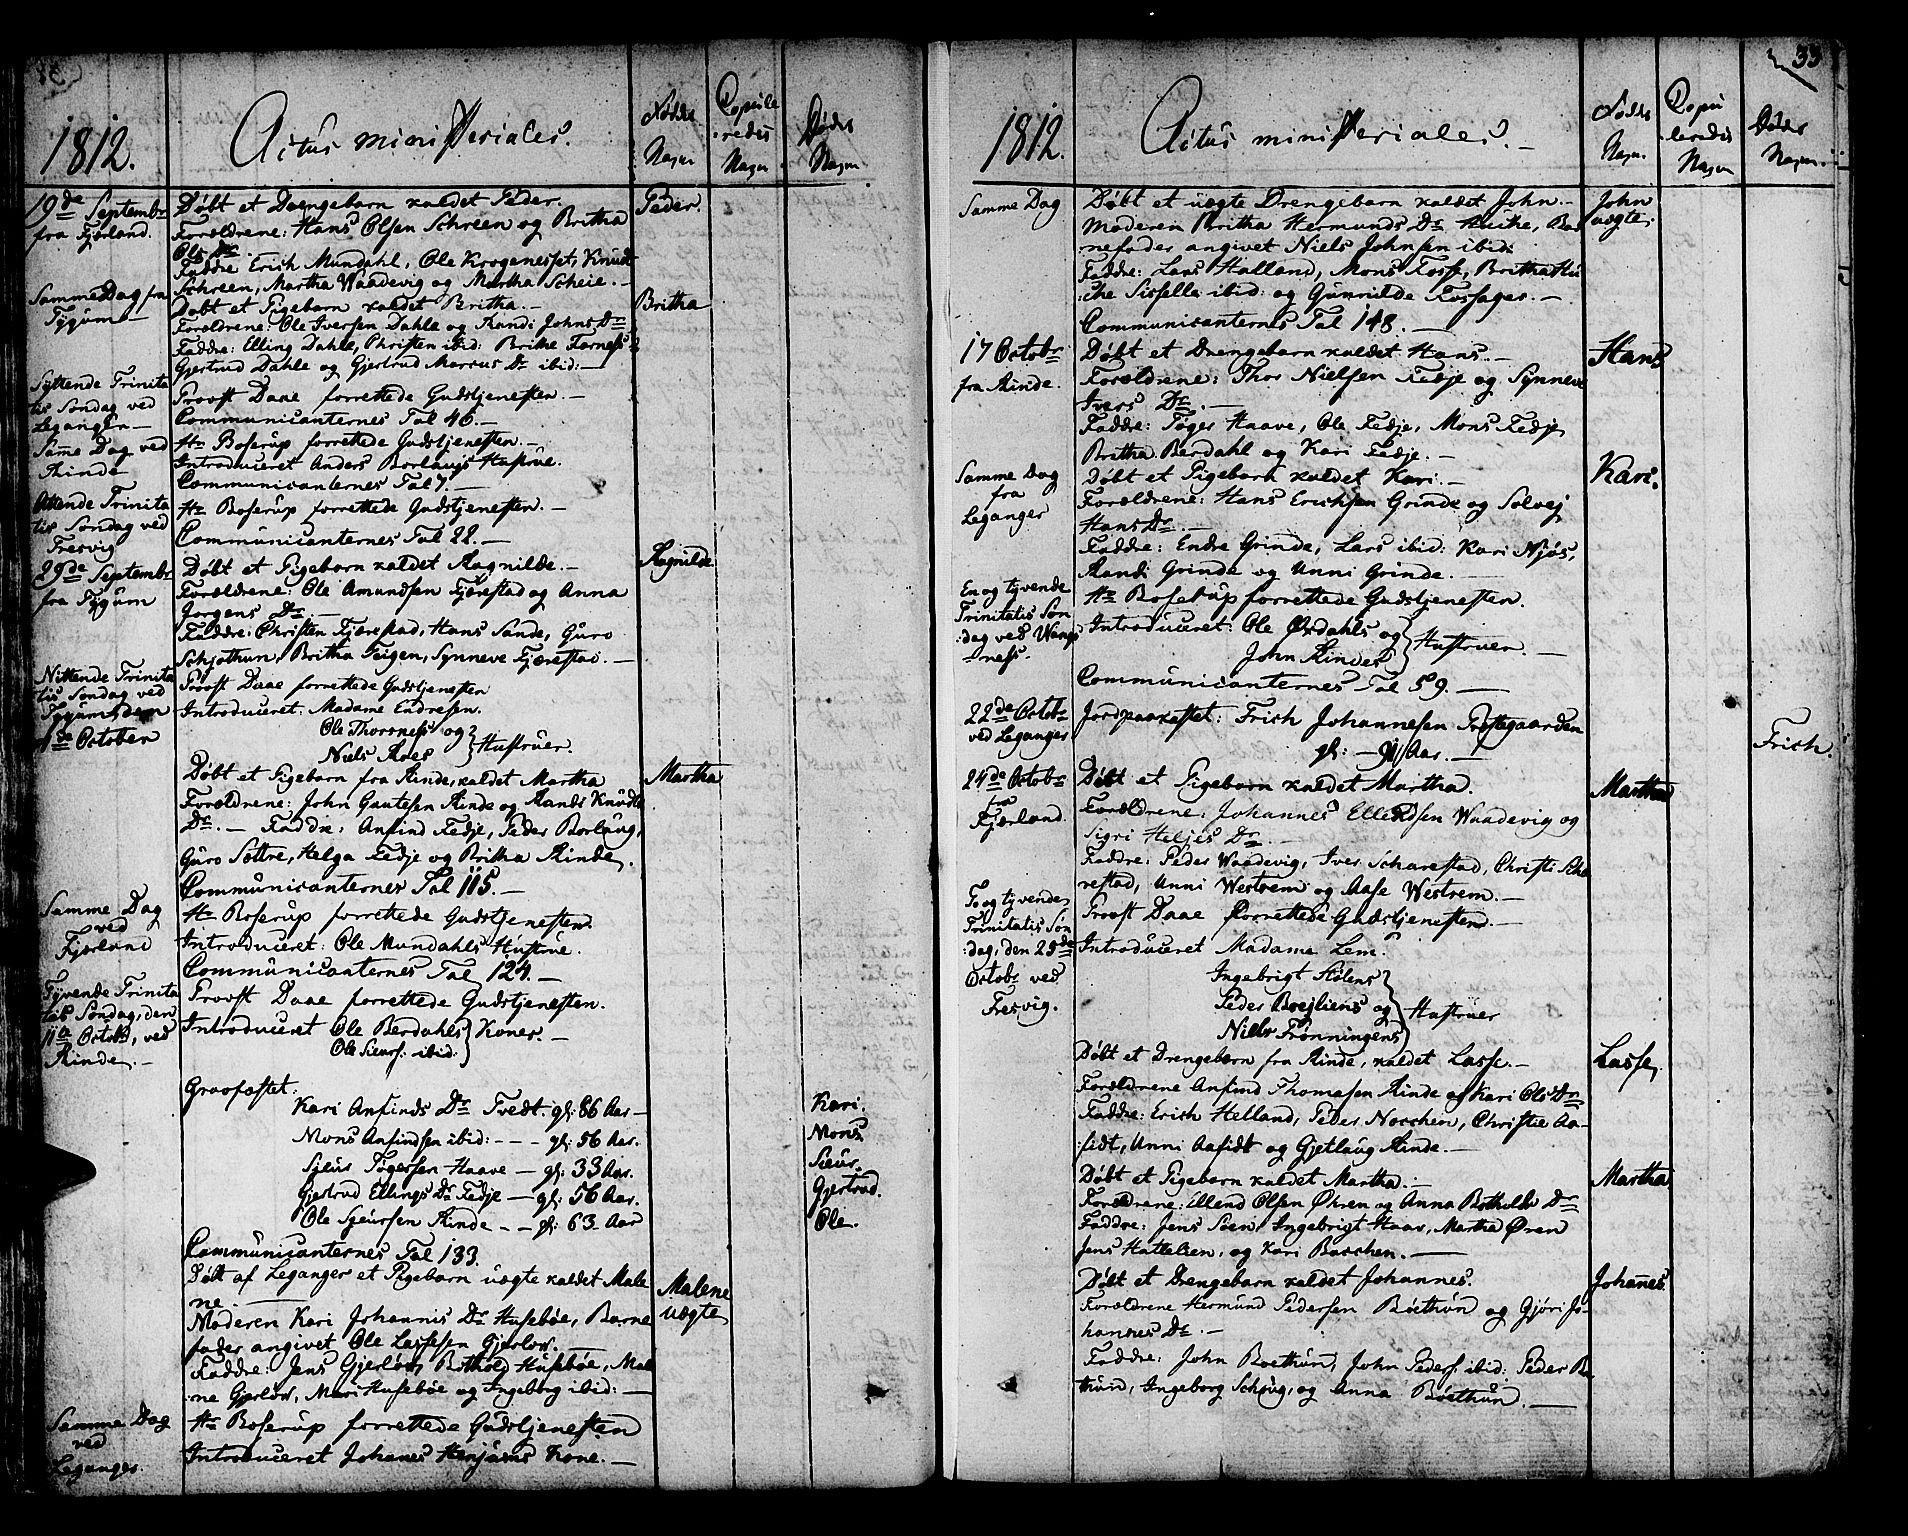 1812.
Actus ministeriales.
Fødde Nagn
Copule redes Nagn
Døde Nagn
19de Septembr
fra Fjærland.
Døbt et Drengebarn kaldet Peder.
Peder.
Forældrene: Hans Olsen Schreen og Britha
Ols Dr
Faddre Erich Mundahl, Ole Krogenesset, Knud
Schreen, Martha Waadevig og Martha Scheie.
Samme Dag fra
Tygum
Døbt et Pigebarn kaldet Britha.
Britha
Forældrene: Ole Iversen Dahle og Randi Johns Dr
Faddre: Elling Dahle, Christen ibid: Brithe
Gjertrud Dahle og Gjertrud Marcus Dr ibid:
Syttende Trinita
tis Søndag ved
Leganger
Provst Daae forrettede Gudstjenesten.
Communicanternes Tal 46.
Same Dag ved
Rinde
Hr Boserup forrettede Gudstjenesten.
Introduceret Anders Borlaugs Hustrue.
Communicanternes Tal 7.
Attende Trinita
tis Søndag ved
Fresvig
Hr Boserup forrettede Gudstjenesten.
Communicanternes Tal 22.
29de Septembr
fra Tygum
Døbt et Pigebarn kaldet Ragnilde.
Ragnilde
Forældrene: Ole Amundsen Fjærestad og Anna
Jørgens Dr.
Faddre: Christen Fjærestad, Hans Sande, Guro
Schjøthun, Britha Teigen, Synneve Fjærestad.
Nittende Trinita
tis Søndag ved
Tygum, den
October
Provst Daae forrettede Gudstjenesten
Introduceret: Madame Endresen.
Ole Thorsness og
Niels Roes
Hustruer.
Døbt et Pigebarn fra Rinde, kaldet Martha
Martha
Forældrene: John Gautesen Rinde og Randi Knuds
Dr. Faddre: Anfind Fedje, Peder Borlaug,
Guro Sottre, Helga Fedje og Britha Rinde.
Communicanternes Tal 115.
Samme Dag
ved
Fjærland
Hr Boserup forrettede Gudstjenesten.
Introduceret: Ole Mundahls Hustrue.
Communicanternes Tal 124.
Tyvende Trinita
tis Søndag, den
11te Octobr, ved
Rinde.
Provst Daae forrettede Gudstjenesten.
Introduceret Ole Berdahls
Ole Sieurs. ibid:
Koner.
Gravfæstet.
Kari Anfinds Dr Tvedt. gl: 86 Aar
Kari.
Mons Anfindsen ibid: - - - gl: 56 Aar.
Mons
Sjeur Tøgersen Haave - gl: 33 Aar.
Sieur.
Gjertrud Ellings Dr Fedje - gl: 56 Aar.
Gjertrud.
Ole Sjeursen Rinde - - gl: 63 Aar
Ole.
Communicanternes Tal 133.
Døbt af Leganger et Pigebarn uægte kaldet Male
ne.
Malene
uægte
Moderen Kari Johannis Dr Husebøe, Barne
fader angivet Ole Lassesen Gjerløv.
Faddre: Jens Gjerløv, Bothold Husebøe, Male
ne Gjerløv, Mari Husebøe og Ingeborg ibid:
Samme Dag
ved
Leganger
Hr Boserup forrettede Gudstjenesten
Introduceret Johanes Henjums Kone.
33
1812.
Actus ministeriales.
Fødde Nagn.
Copu lerede Nagn
Døde Nagn.
Samme Dag
Døbt et uægte Drengebarn kaldet John.
John
uægte
Moderen Britha Hermunds Dr Huike, Bar
nefader angivet Niels Johnsen ibid:
Faddre: Lars Halland, Mons Fosse, Britha Hui
che Sisselle ibid: og Gunnilde Fossager.
Communicanternes Tal 148.
17 Octobr
fra Rinde.
Døbt et Drengebarn kaldet Hans.
Hans
Forældrene: Thor Nielsen Fedje og Synneve
Ivers Dr.
Faddre: Tøger Haave, Ole Fedje, Mons Fedje
Britha Berdahl og Kari Fedje.
Samme Dag
fra
Leganger
Døbt et Pigebarn kaldet Kari.
Kari.
Forældrene: Hans Erichsen Grinde og Solvej
Hans Dr.
Faddre: Endre Grinde, Lars ibid: Kari Njøs,
Randi Grinde og Unni Grinde.
En og tyvende
Trinitatis Søn
dag ved Wangs
ness.
Hr Boserup forrettede Gudstjenesten.
Introduceret: Ole Ørdahls og
John Rindes
Hustruer.
Communicanternes Tal 59.
22de Octob
ved Leganger
Jordpaakastet: Frich Johannesen Prestegaarden
gl: - 91 Aar.
Frich.
24de Octobr
fra
Fjærland.
Døbt et Pigebarn kaldet Martha.
Martha
Forældrene: Johannes Ellendsen Waadevig og
Sigri Heljes Dr.
Faddre: Peder Waadevig, Iver Scharestad, Christi Scha
restad, Unni Westrem og Aase Westrem.
To og tyvende
Trinitatis Søn
dag, den 25de
Octobr ved
Fresvig.
Provst Daae forrettede Gudstjenesten.
Introduceret Madame Lem.
Ingebrigt Stølens
Peder Brejliens og
Niels Frønningens
Hustruer
Døbt et Drengebarn fra Rinde, kaldet Lasse.
Lasse.
Forældrene Anfind Thomasen Rinde og Kari Ols Dr
Faddre: Erich Helland, Peder Norchen, Christie Aa-
fedt, Unni Aafedt og Gjetlaug Rinde.
Døbt et Pigebarn kaldet Martha.
Martha
Forældrene: Ellend Olsen Øhren og Anna Botholds Dr
Faddre: Jens Seen, Ingebrigt Haav, Martha Øren
Jens Hattelien, og Kari Barchen.
Døbt et Drengebarn kaldet Johannes.
Johanes
Forældrene Hermund Pedersen Bøethun og Gjøri Jo
hannes Dr.
Faddre: John Boethun, John Peders. ibid: Peder Bø
thun, Ingeborg Schoug, og Anna Bøethun.